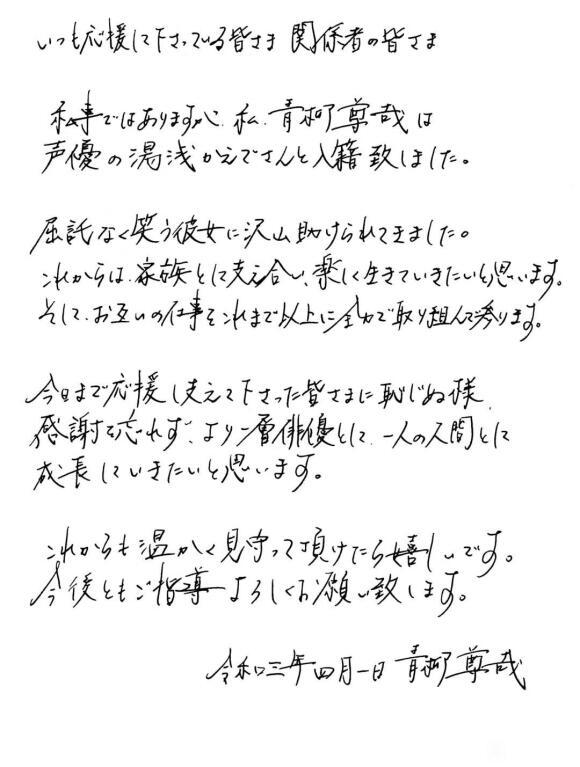 いつも応援して下さっている皆さま 関係者の皆さま
私事ではありますが、私、青柳尊哉は
声優の湯浅かえでさんと入籍致しました。
屈託なく笑う彼女に沢山助けられてきました。
これからは、家族として支え合い、楽しく生きていきたいと思います。
そして、お互いの仕事をこれまで以上に全力で取り組んで参ります。
今日まで応援し支えて下さった皆さまに恥じぬ様、
感謝を忘れず、より一層俳優として、一人の人間として
成長していきたいと思います。
これからも温かく見守って頂けたら嬉しいです。
今後ともご指導よろしくお願い致します。
令和三年四月一日 青柳尊哉